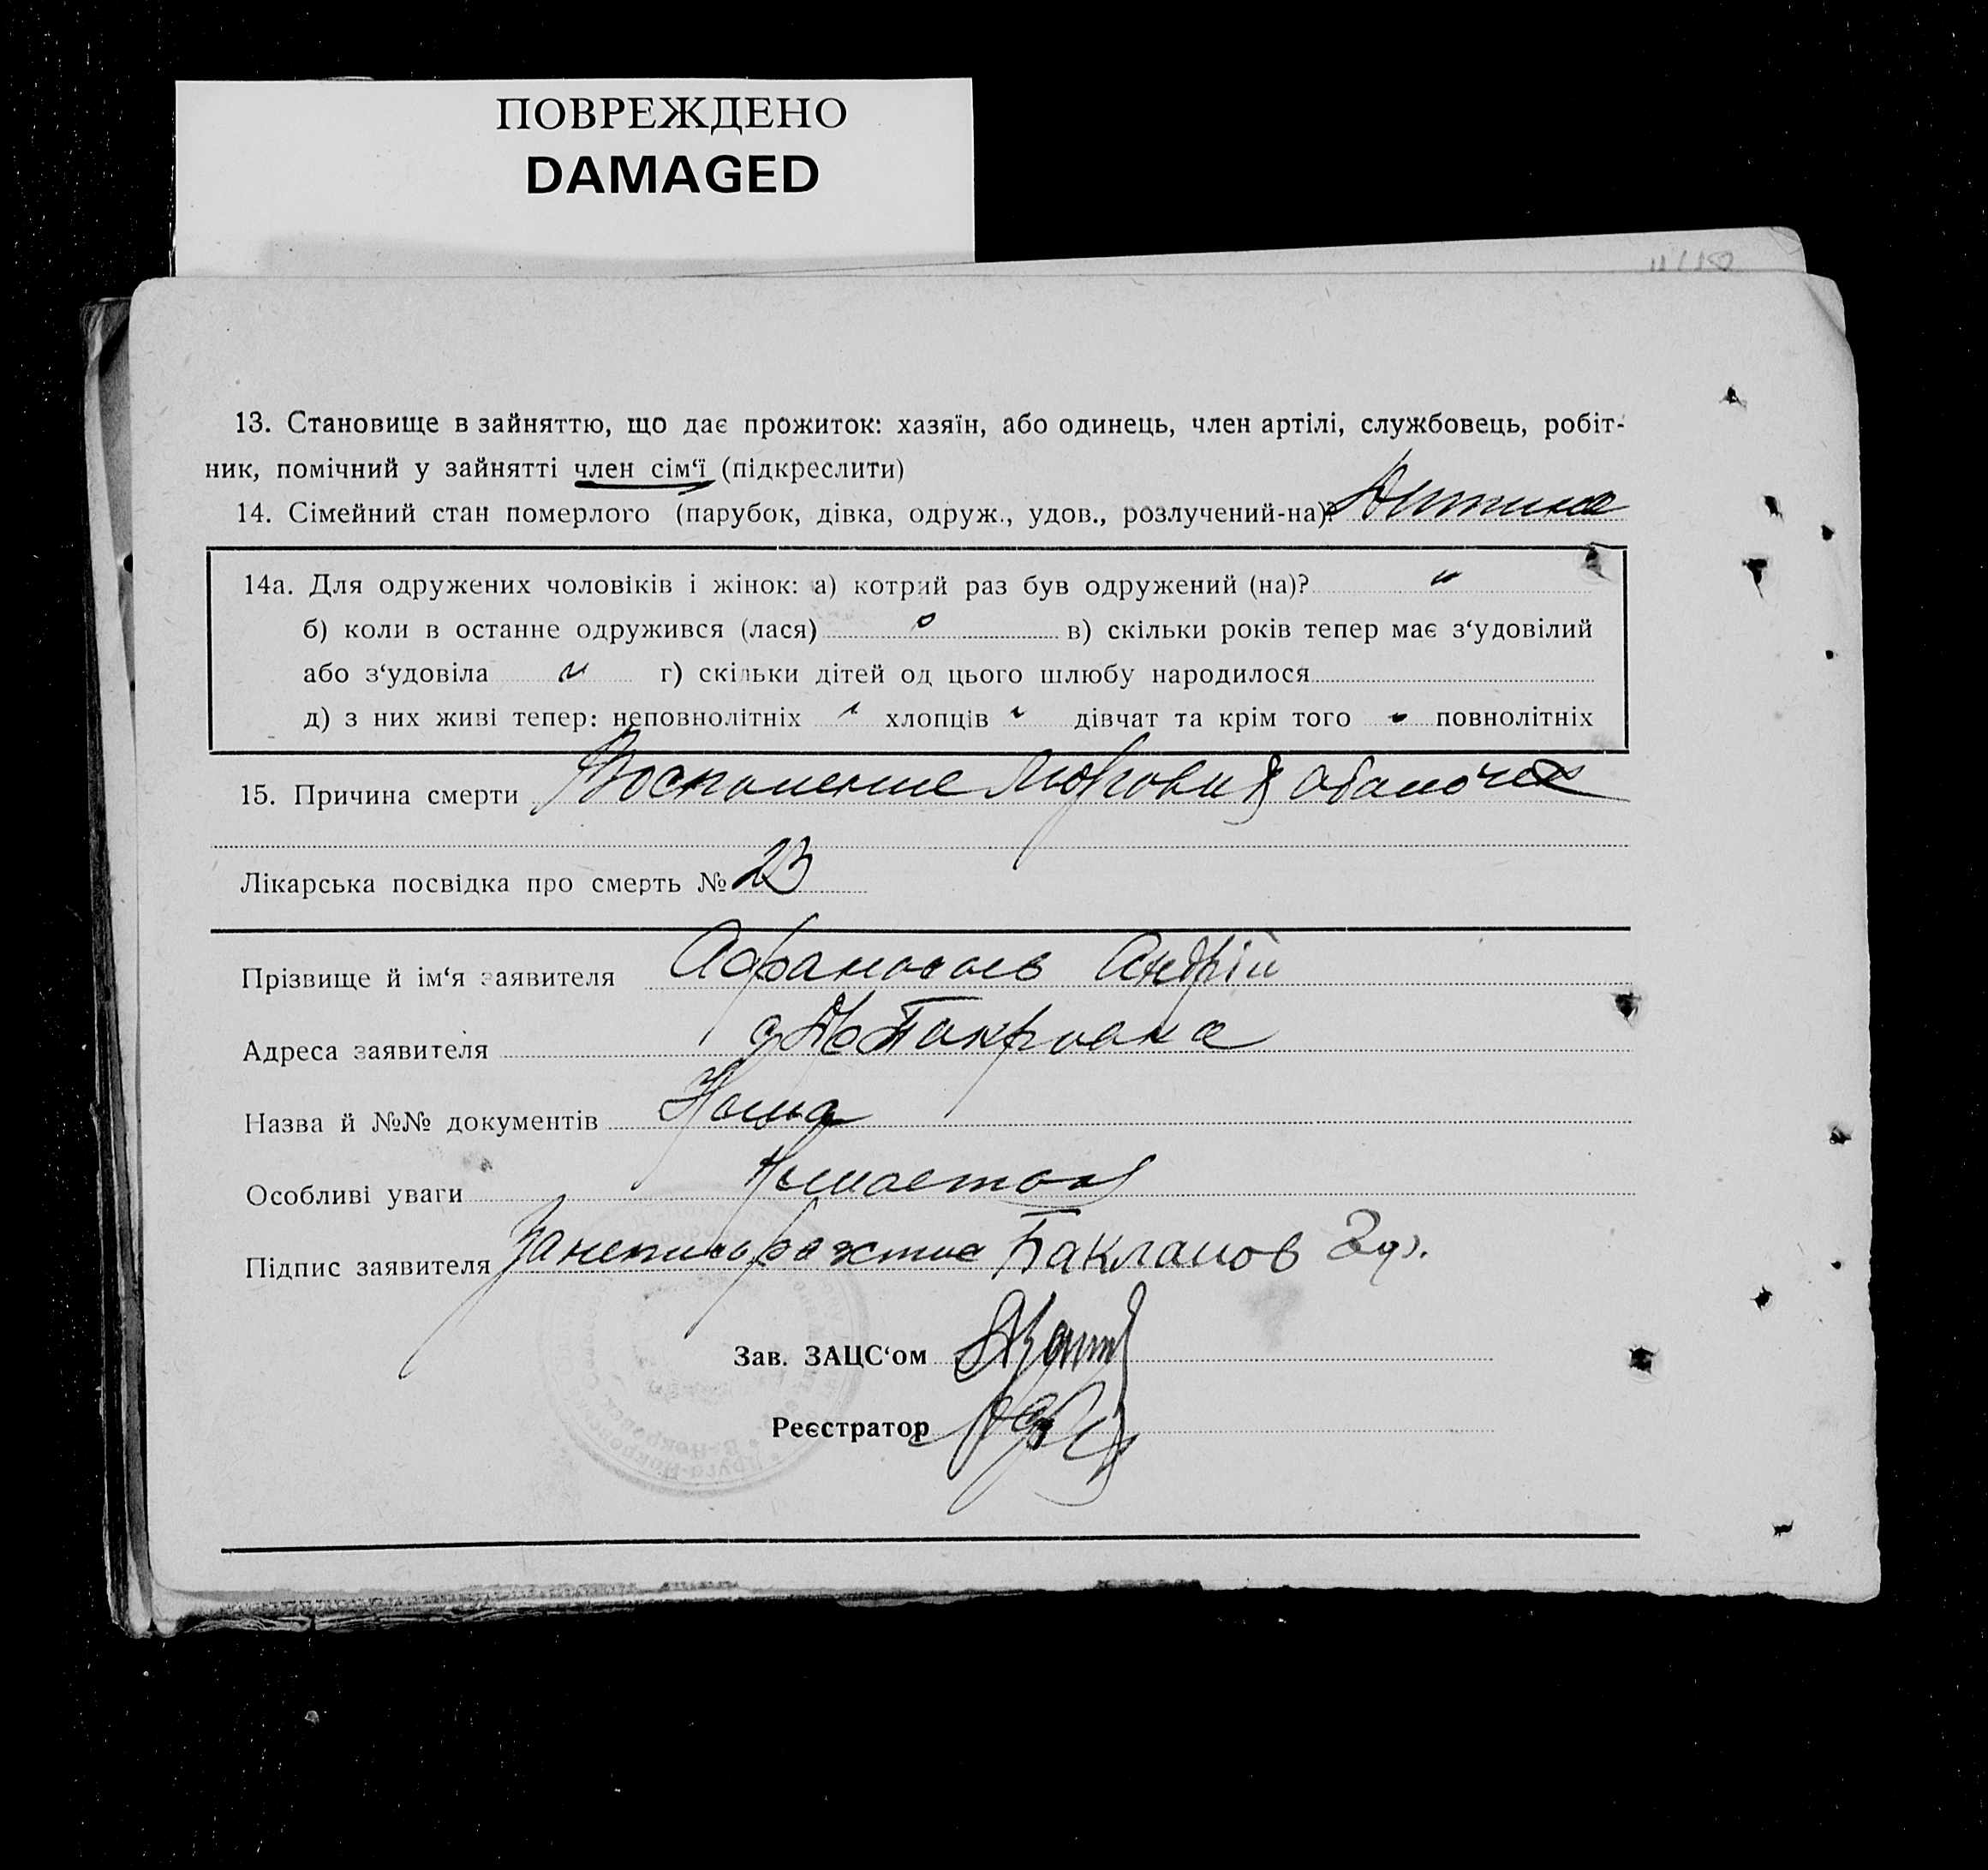 ПОВРЕЖДЕНО
DAMAGED
13. Становище в зайняттю, що дає прожиток: хазяїн, або одинець, член артілі, службовець, робіт-
ник, помічний у зайнятті член сім‘ї (підкреслити)
14. Сімейний стан померлого (парубок, дівка, одруж., удов., розлучений-на)? Дитина
14а. Для одружених чоловіків і жінок: а) котрий раз був одружений (на)? "
б) коли в останне одружився (лася) в) скільки років тепер має з‘удовілий
або з‘удовіла " г) скільки дітей од цього шлюбу народилося
д) з них живі тепер: неповнолітніх " хлопців " дівчат та крім того " повнолітніх
15. Причина смерти
Лікарська посвідка про смерть № 23
Прізвище й ім‘я заявителя Андрій
Адреса заявителя
Назва й №№ документів Нема
Особливі уваги
Підпис заявителя Бакланов
Зав. ЗАЦС‘ом
Реєстратор